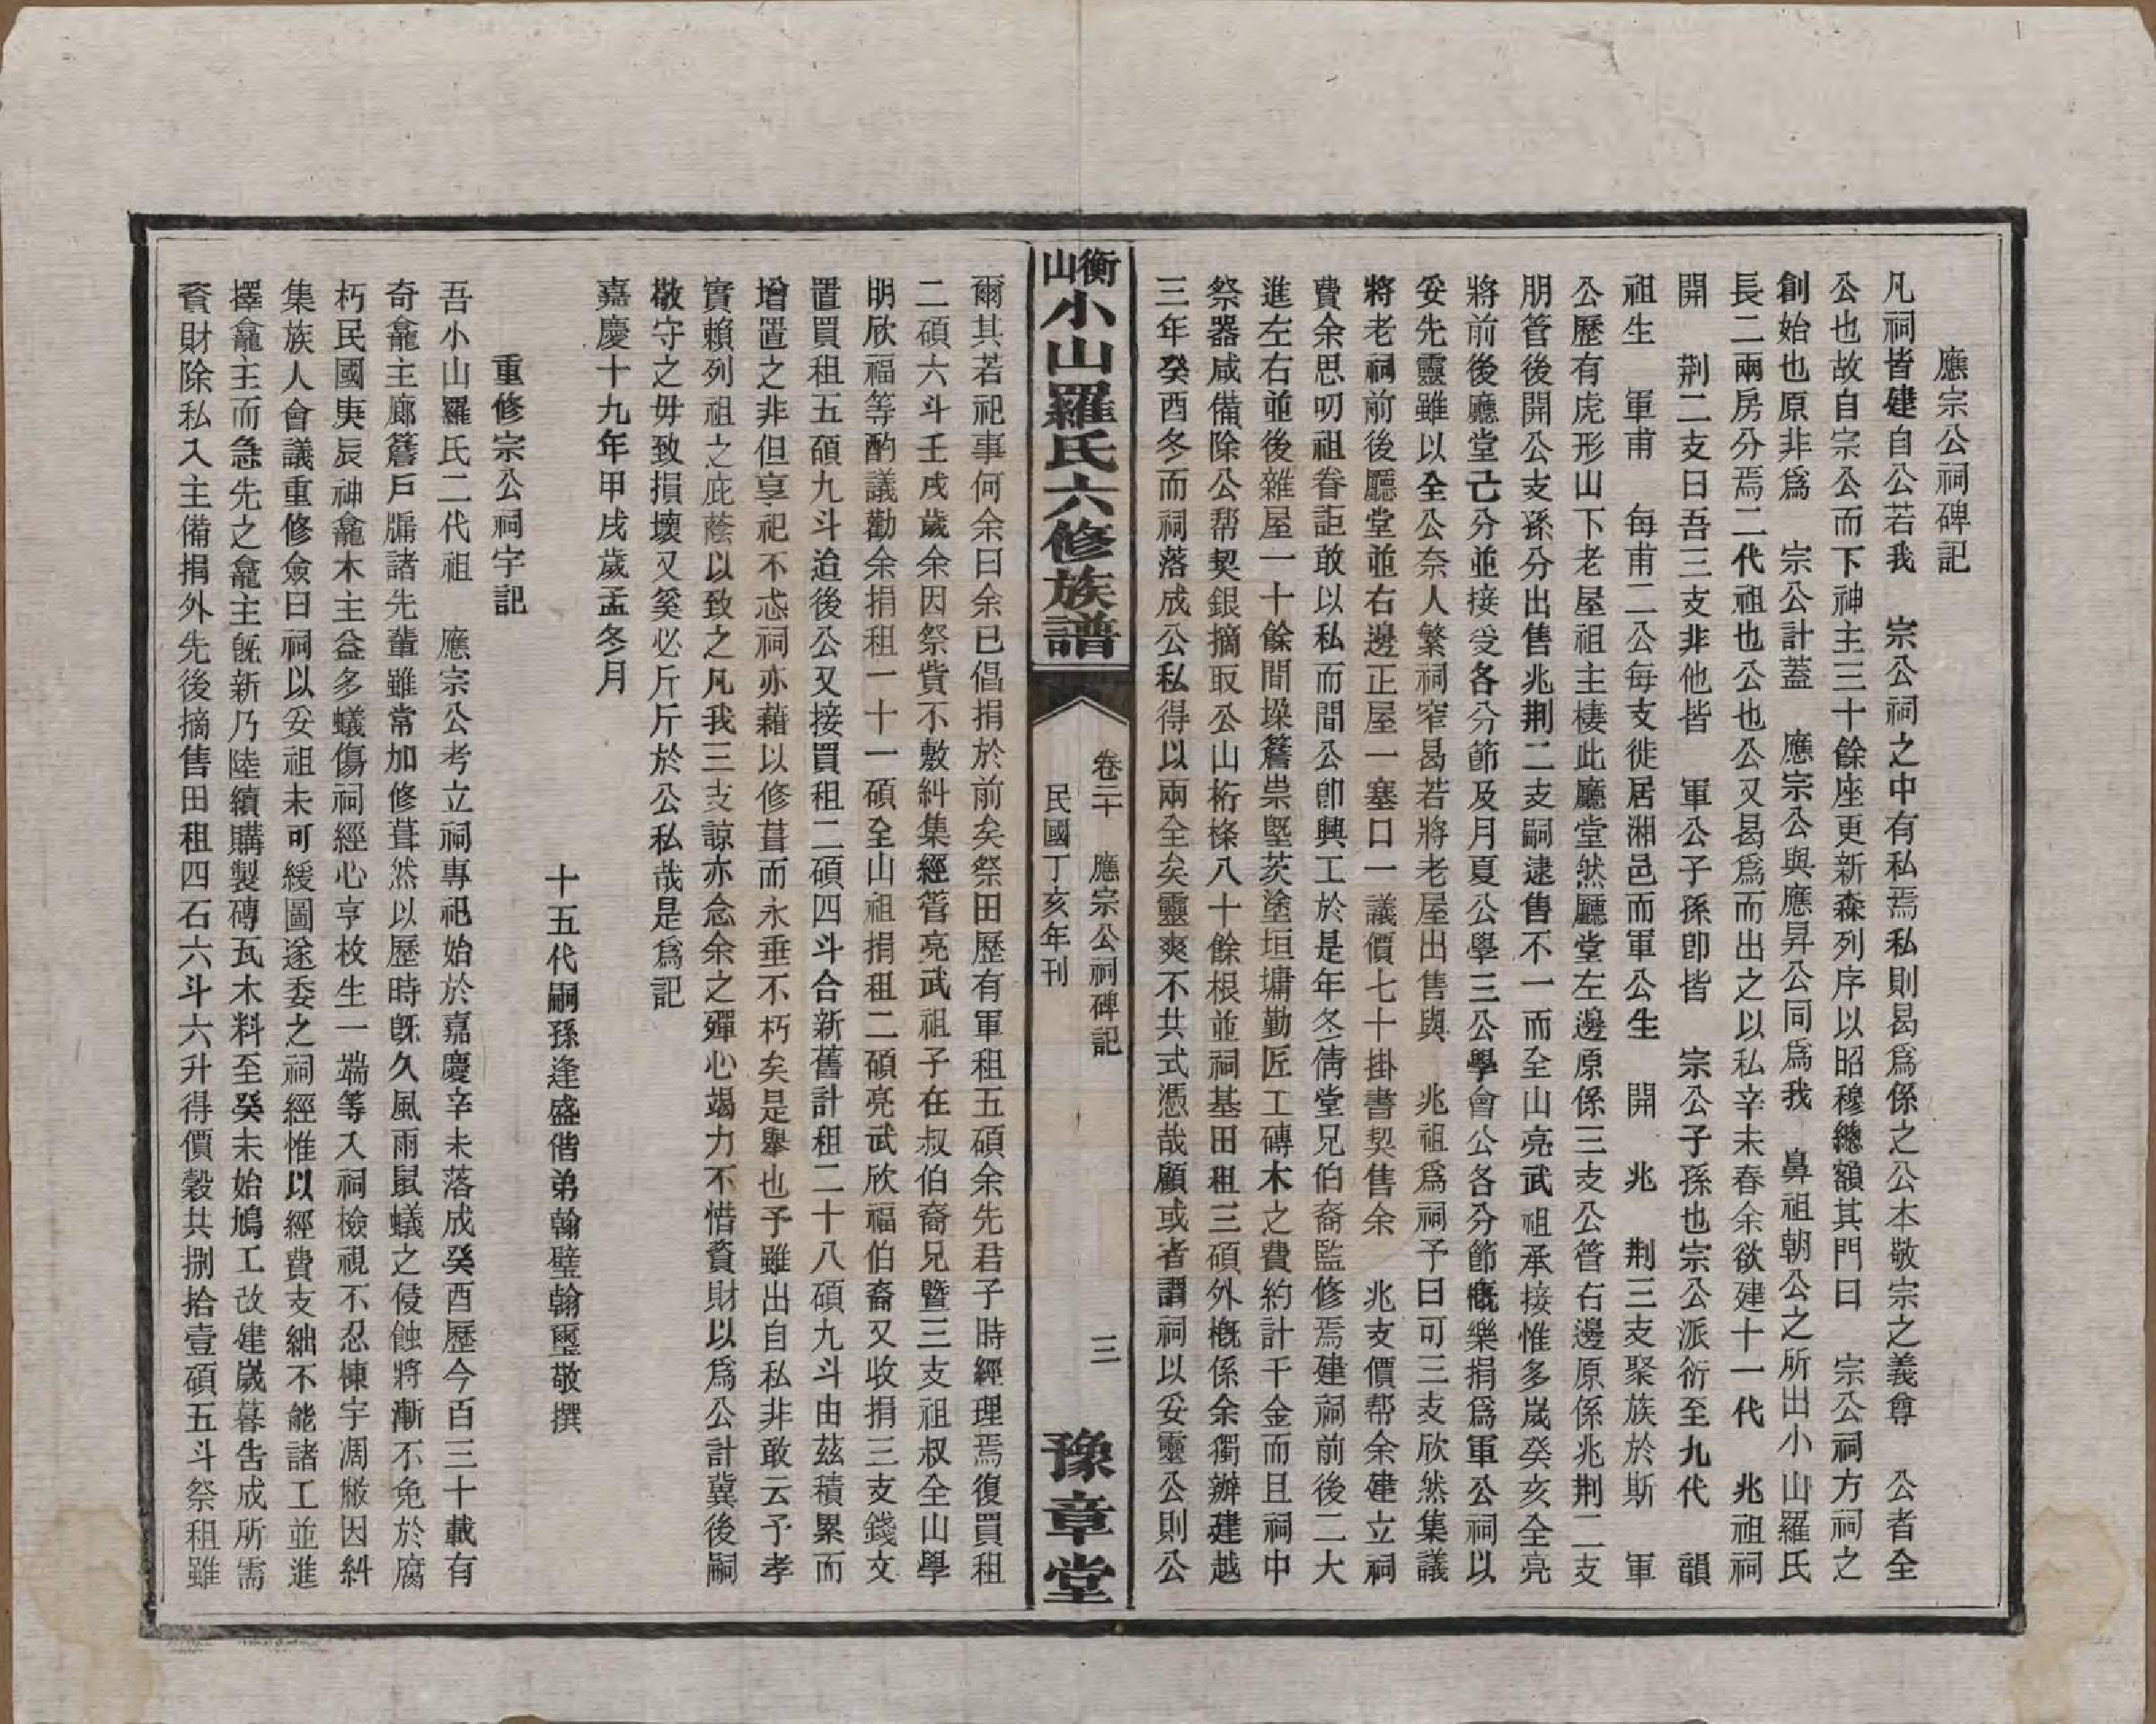 應宗公祠碑記
凡祠皆建自公若我　宗公祠之中有私焉私則曷爲係之公本敬宗之義尊　公者全
公也故自宗公而下神主三十餘座更新森列序以昭穆總額其門曰　宗公祠方祠之
創始也原非爲　宗公計蓋　應宗公與應昇公同爲我　鼻祖朝公之所出小山羅氏
長二兩房分焉二代祖也公也公又曷爲而出之以私辛未春余欲建十一代　兆祖祠
開　荆二支曰吾三支非他皆　軍公子孫卽皆　宗公子孫也宗公派衍至九代　韻
祖生　軍甫　每甫二公每支徙居湘邑而軍公生　開　兆　荆三支聚族於斯　軍
公歷有虎形山下老屋祖主棲此廳堂然廳堂左邊原係三支公管右邊原係兆荆二支
朋管後開公支孫分出售兆荆二支嗣逮售不一而至山亮武祖承接惟多嵗癸亥全亮
將前後廳堂己分並接受各分節及月夏公學三公學會公各分節慨樂捐爲軍公祠以
妥先靈雖以全公奈人繁祠窄曷若將老屋出售與　兆祖爲祠予曰可三支欣然集議
將老祠前後廳堂並右邊正屋一塞口一議價七十掛書契售余　兆支價帮余建立祠
費余思叨祖眷詎敢以私而間公卽興工於是年冬倩堂兄伯裔監修焉建祠前後二大
進左右並後雜屋一十餘間垜簷祟墍茨塗垣墉勤匠工磚木之費約計千金而且祠中
祭器咸備除公帮契銀摘取公山桁條八十餘根並祠基田租三碩外槪係余獨辦建越
三年癸酉冬而祠落成公私得以兩全矣靈爽不共式憑哉顧或者謂祠以妥靈公則公
衡山小山羅氏六修族譜
卷二十　應宗公祠碑記　三
民國丁亥年刊
豫章堂
爾其若祀事何余曰余已倡捐於前矣祭田歷有軍租五碩余先君子時經理焉復買租
二碩六斗壬戌歲余因祭貲不敷糾集經管亮武祖子在叔伯裔兄暨三支祖叔全山學
明欣福等酌議勸余捐租一十一碩全山祖捐租二碩亮武欣福伯裔又收捐三支錢文
置買租五碩九斗迨後公又接買租二碩四斗合新舊計租二十八碩九斗由茲積累而
增置之非但享祀不忒祠亦藉以修葺而永垂不朽矣是舉也予雖出自私非敢云予孝
實賴列祖之庇蔭以致之凡我三支諒亦念余之殫心竭力不惜資財以爲公計冀後嗣
敬守之毋致損壞又奚必斤斤於公私哉是爲記
嘉慶十九年甲戌歲孟冬月
十五代嗣孫逢盛偕弟翰璧翰璽敬撰
重修宗公祠宇記
吾小山羅氏二代祖　應宗公考立祠專祀始於嘉慶辛未落成癸酉歷今百三十載有
奇龕主廊簷戶牖諸先輩雖常加修葺然以歷時旣久風雨鼠蟻之侵蝕將漸不免於腐
朽民國庚辰神龕木主益多蟻傷祠經心亨枚生一端等入祠檢視不忍棟宇凋敝因糾
集族人會議重修僉曰祠以妥祖未可緩圖遂委之祠經惟以經費支絀不能諸工並進
擇龕主而急先之龕主旣新乃陸續購製磚瓦木料至癸未始鳩工改建嵗暮告成所需
資財除私入主備捐外先後摘售田租四石六斗六升得價穀共捌拾壹碩五斗祭租雖